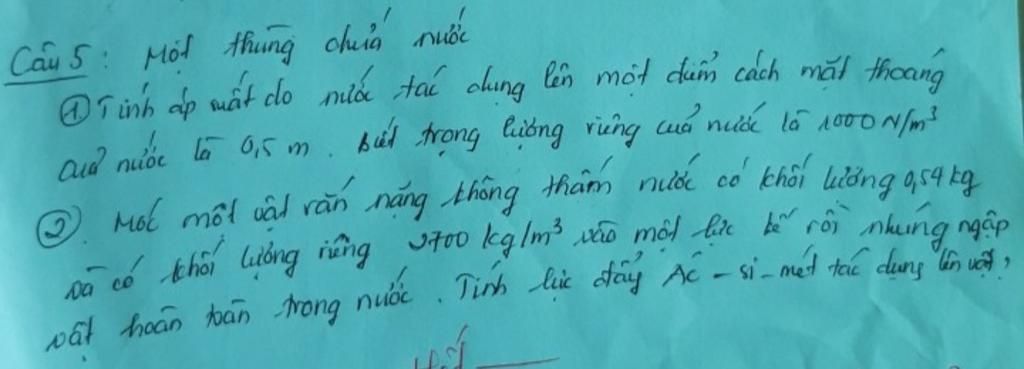 Câu 5: Một thùng chứa nước
① Tính áp suất do nước tác dụng lên một điểm cách mặt thoáng
của nước là 0,5 m. Biết trọng lượng riêng của nước là 1000 N/m³
②. Móc một vật rắn nặng không thấm nước có khối lượng 0,54 kg
và có khối lượng riêng 2700 kg/m³ vào một lực kế rồi nhúng ngập
vật hoàn toàn trong nước. Tính lực đẩy Ác-si-mét tác dụng lên vật?